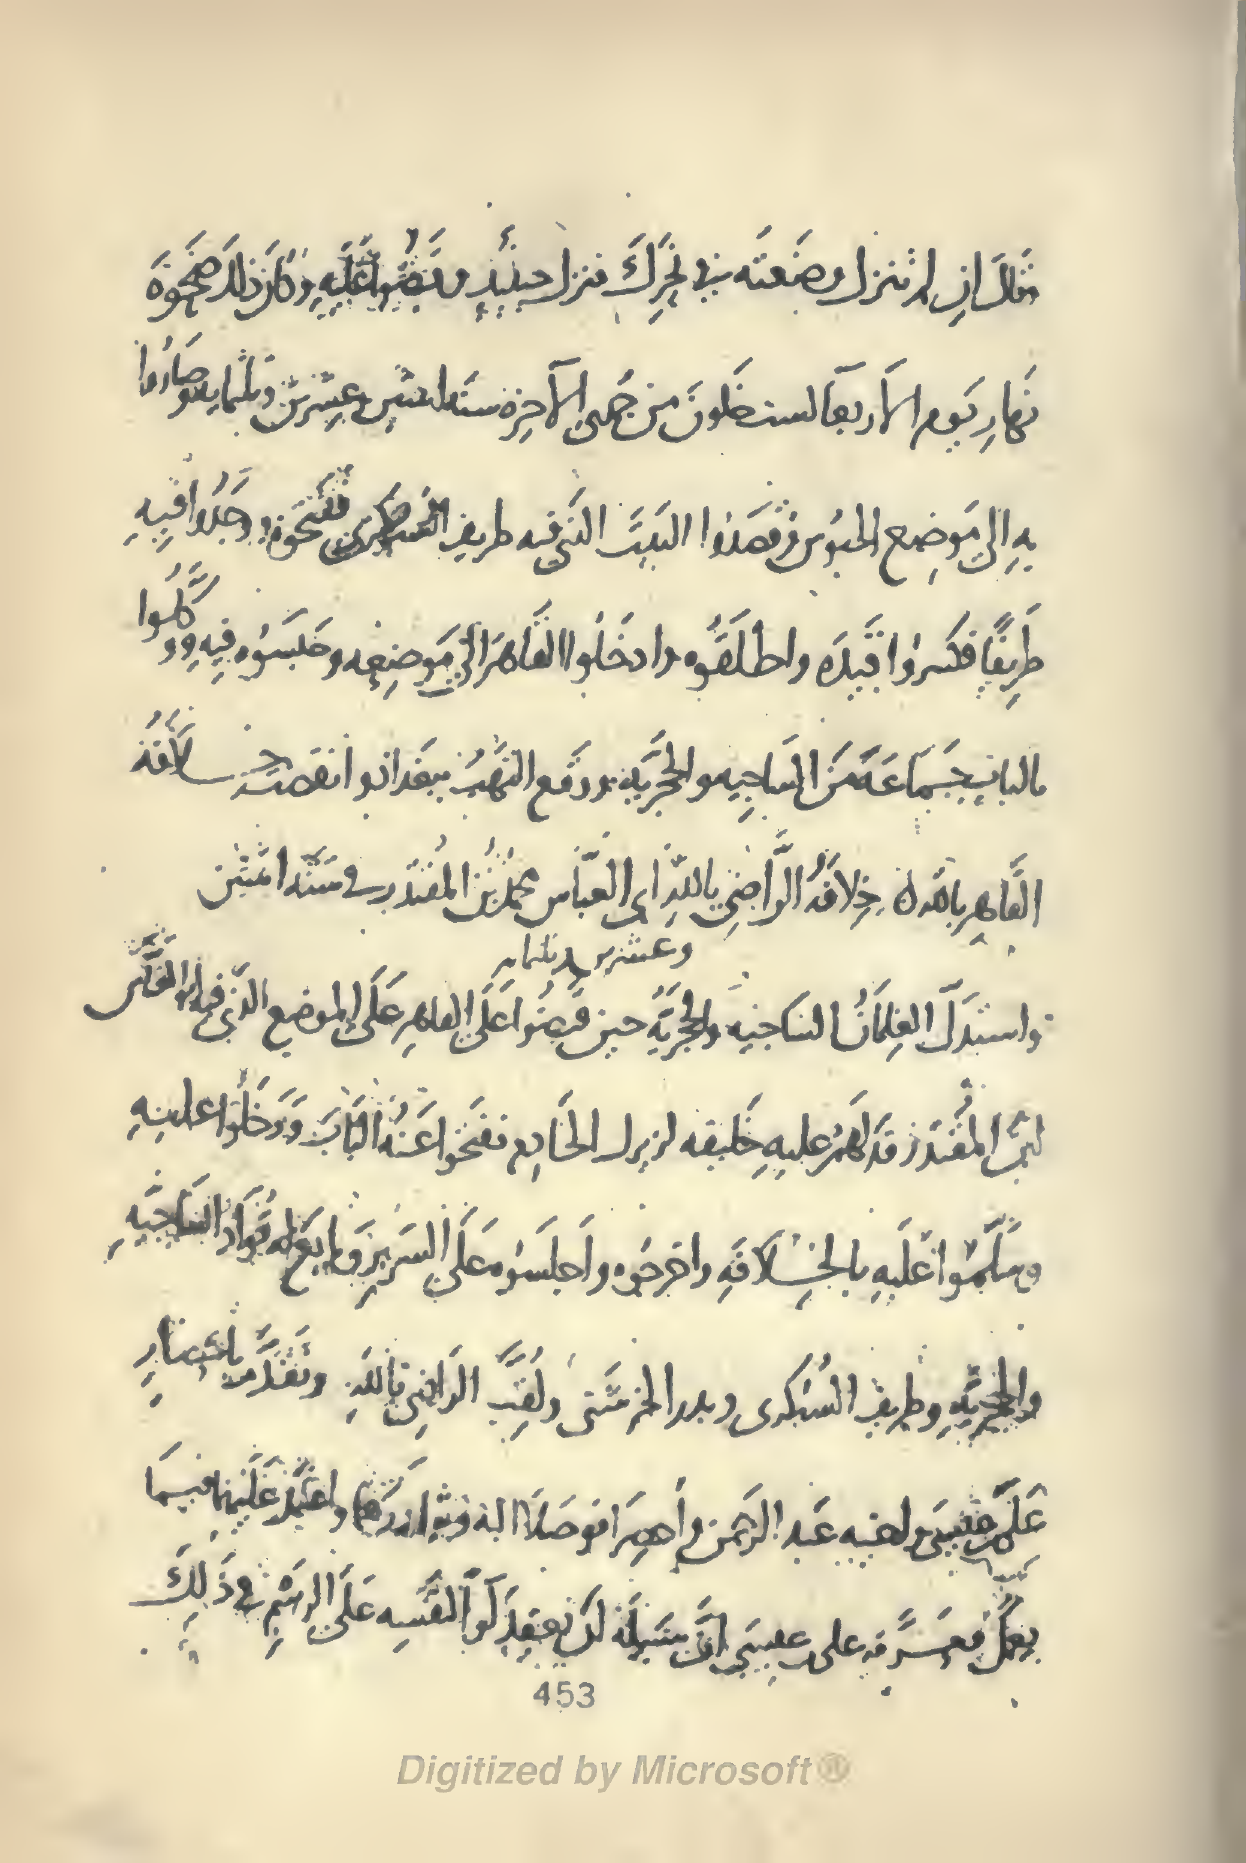 فقال ان لم تنزل وضعته في نحرك فنزل حينئذ وقبضوا عليه وكان ذلك ضحوة
نهار يوم الاربعا لست خلون من جمدى الاخرة سنة اثنتين وعشرين وثلثمايه وصاروا
به الى موضع الحبوس فقصدوا البيت الذى فيه طريف السبكرى ففتحوه ووجدوا فيه
طريفا فكسروا قيده واطلقوه وادخلوا القاهر الى موضعه وحبسوه فيه ووكلوا
بالباب جماعة من الساجيه والحجريه ووقع النهب ببغداد وانقضت خلافة
القاهر بالله خلافة الراضى بالله ابى العباس محمد بن المقتدر فى سنة اثنتين
وعشرين وثلثمايه
واستدل الغلمان الساجيه والحجريه حين قبضوا على القاهر على الموضع الذى فيه ابو العباس
ابن المقتدر فدلهم عليه خليفه لزيرك الخادم ففتحوا عنه الباب ودخلوا عليه
وسلموا عليه بالخلافه واخرجوه واجلسوه على السرير وبايع له قواد الساجيه
والحجريه وطريف السبكرى وبدر الخرشنى ولقب الراضى بالله وتقدم باحضار
على بن عيسى واخيه عبد الرحمن فاحضرا فوصلا اليه وشاورهما واعتمد عليهما فيما
يعمل فعرفه على بن عيسى ان سبيله ان يعقد لواء لنفسه على الرسم فى ذلك
453
Digitized by Microsoft®